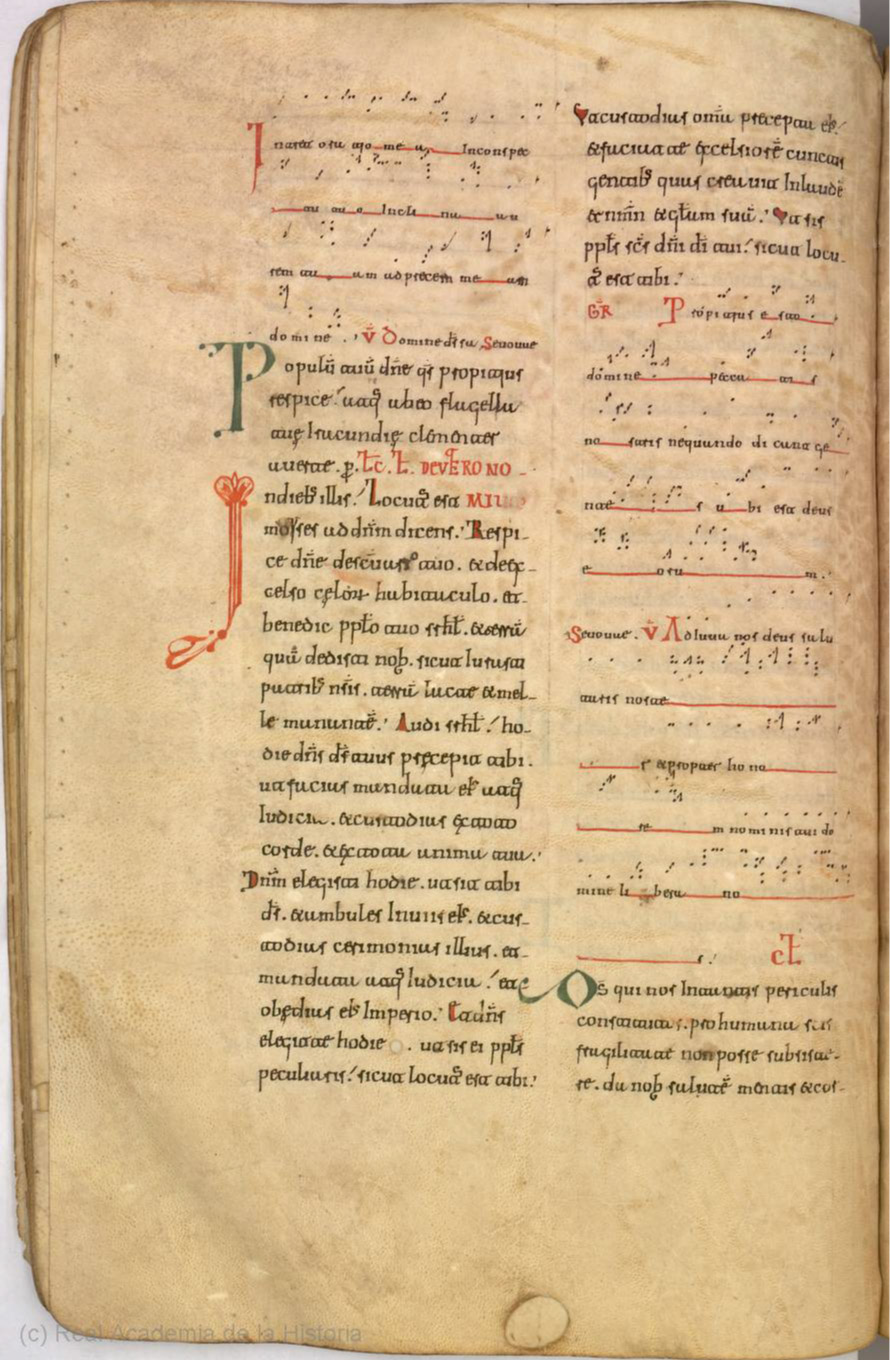 Intret oratio mea in conspec
tu tuo Incli na au
rem tu um ad precem me am
domine . V Domine ds sa Seuouae
Populū tuū dn̄e qs propitius
respice atq; ab eo flagella
tuę Iracundię clēmenter
auerte . p. Lc. L. DEVTERONO
Indieb; illis. Locut' est MII
moyses ad dn̄m dicens. Respi
ce dn̄e de sc̄tuario tuo. & deex
celso celorum habitaculo. et
benedic pplo tuo srhl. & terrā
quā dedisti nob. sicut iurasti
patrib; nr̄is. terrā lacte & mel
le manantē. Audi srhl. ho
die dn̄s ds̄ tuus precepit tibi.
ut facias mandata ei' atq;
Iudicia. & custodias ex toto
corde. & ex tota anima tua.
Dn̄m elegisti hodie. ut sit tibi
ds̄. & ambules In uiis ei'. & cus
todias cerimonias illius. et
mandata atq; Iudicia. et
obędias ei' Imperio. Et dn̄s
elegit te hodie . ut sis ei ppls
peculiaris. sicut locut' est tibi.
Ut custodias om̄ia precepta ei'
& faciat te excelsiorē cunctis
gentib; quas creauit In laudē
& nom̄ & glām suā. Ut sis
ppls sc̄s dn̄i di tui. sicut locu
t' est tibi.
GR Propitius esto
domine pecca tis
nostris nequando dicant ge
ntes ubi est deus
eorum.
Seuouae. V Adiuua nos deus salu
taris noster
& propter hono
rem nominis tui do
mine libera no
s. cL
Ds qui nos In tantis periculis
constitutos. pro humana scis
fragilitate non posse subsiste
re. da nob salutē mentis & cor